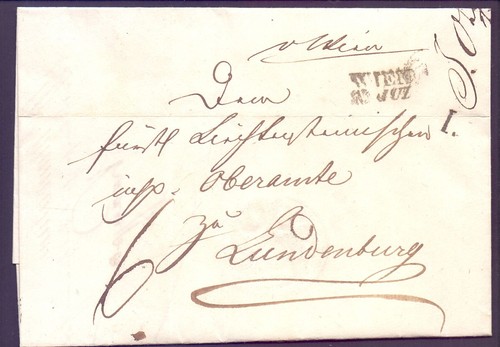 v Wien
WIEN
JUL
I.
Dem
fürstl Liechtensteinischen
Oberamte
zu
Lundenburg
6